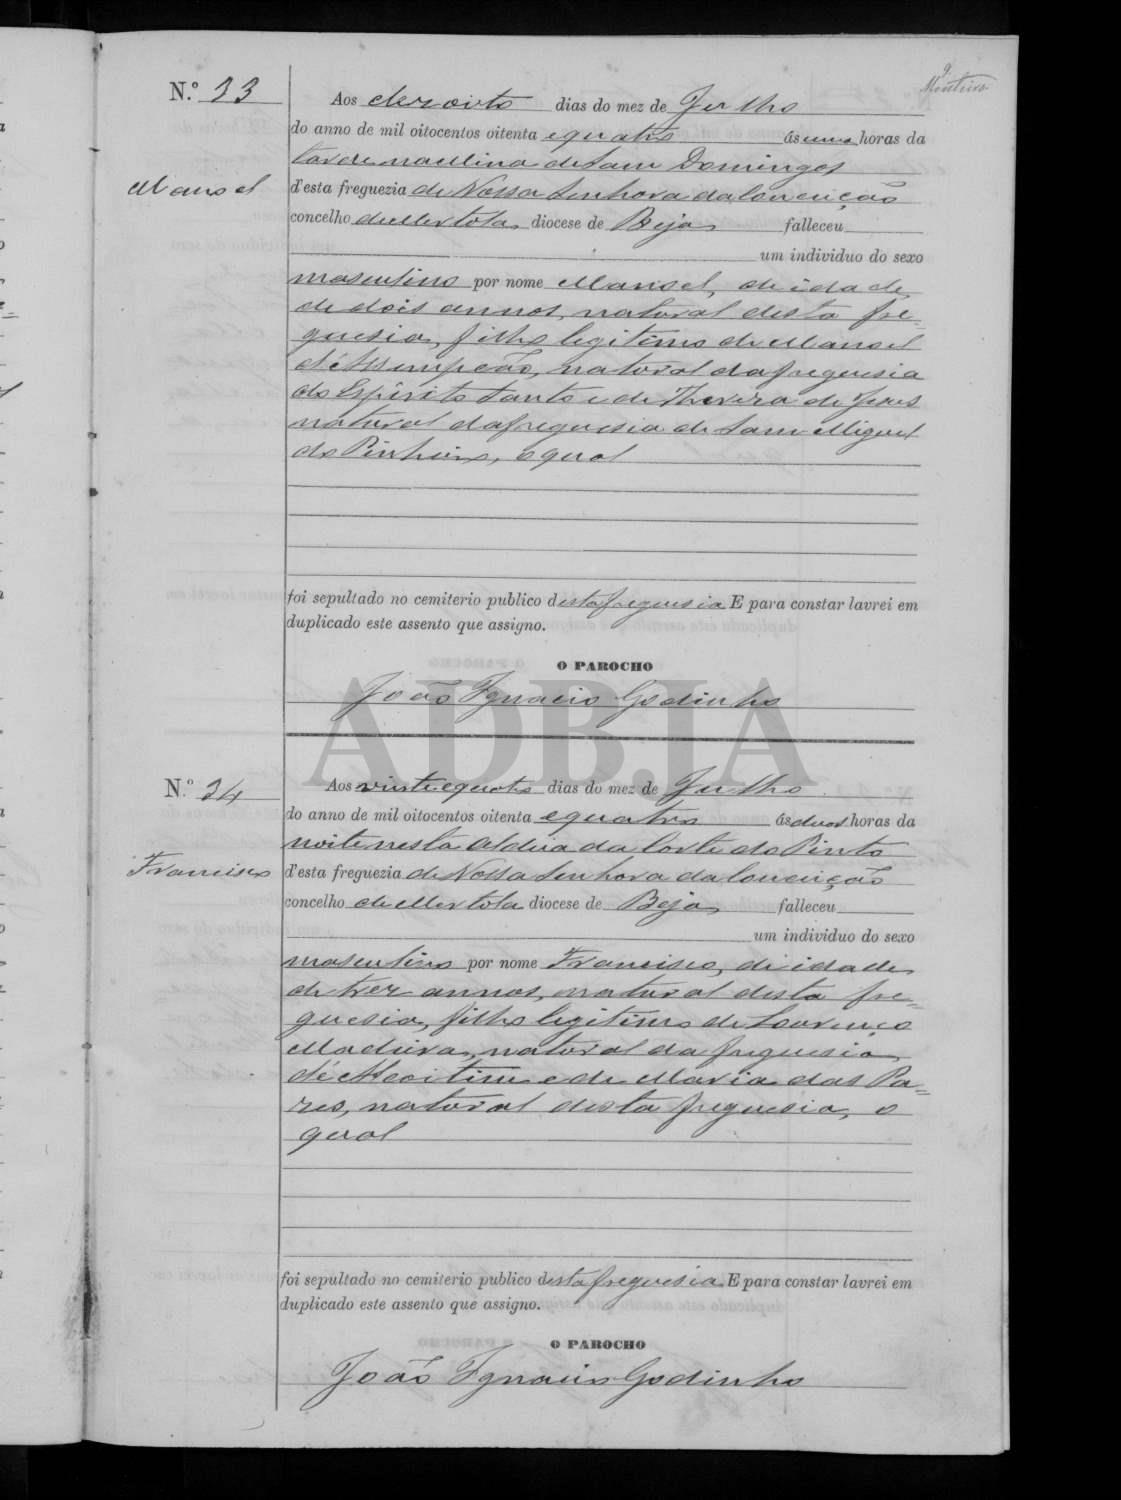 9
Monteiro
N.º 33
Aos dezoito dias do mez de Julho
do anno de mil oitocentos oitenta e quatro ás uma horas da
tarde na Mina de Sam Domingos
Manoel
d'esta freguezia de Nossa Senhora da Conceição
concelho de Mertola, diocese de Beja, falleceu
um individuo do sexo
masculino por nome Manoel, de idade,
de dois annos, natural desta fre=
guesia, filho legitimo de Manoel
d'Assumpção, natural da freguesia
do Espirito Santo e de Thereza de Jesus
natural da freguesia de Sam Miguel
do Pinheiro, o qual
foi sepultado no cemiterio publico desta freguesia E para constar lavrei em
duplicado este assento que assigno.
O PAROCHO
João Ignacio Godinho
ADBJA
N.º 34
Aos vinte e quatro dias do mez de Julho
do anno de mil oitocentos oitenta e quatro ás duas horas da
noite nesta Aldeia da Corte do Pinto
Francisco
d'esta freguezia de Nossa Senhora da Conceição
concelho de Mertola diocese de Beja, falleceu
um individuo do sexo
masculino por nome Francisco, de idade,
de trez annos, natural desta fre=
guesia, filho legitimo de Lourenço
Madeira, natural da freguesia
d'Alcoitim e de Maria das Pa=
res, natural desta freguesia, o
qual
foi sepultado no cemiterio publico desta freguesia E para constar lavrei em
duplicado este assento que assigno.
O PAROCHO
João Ignacio Godinho